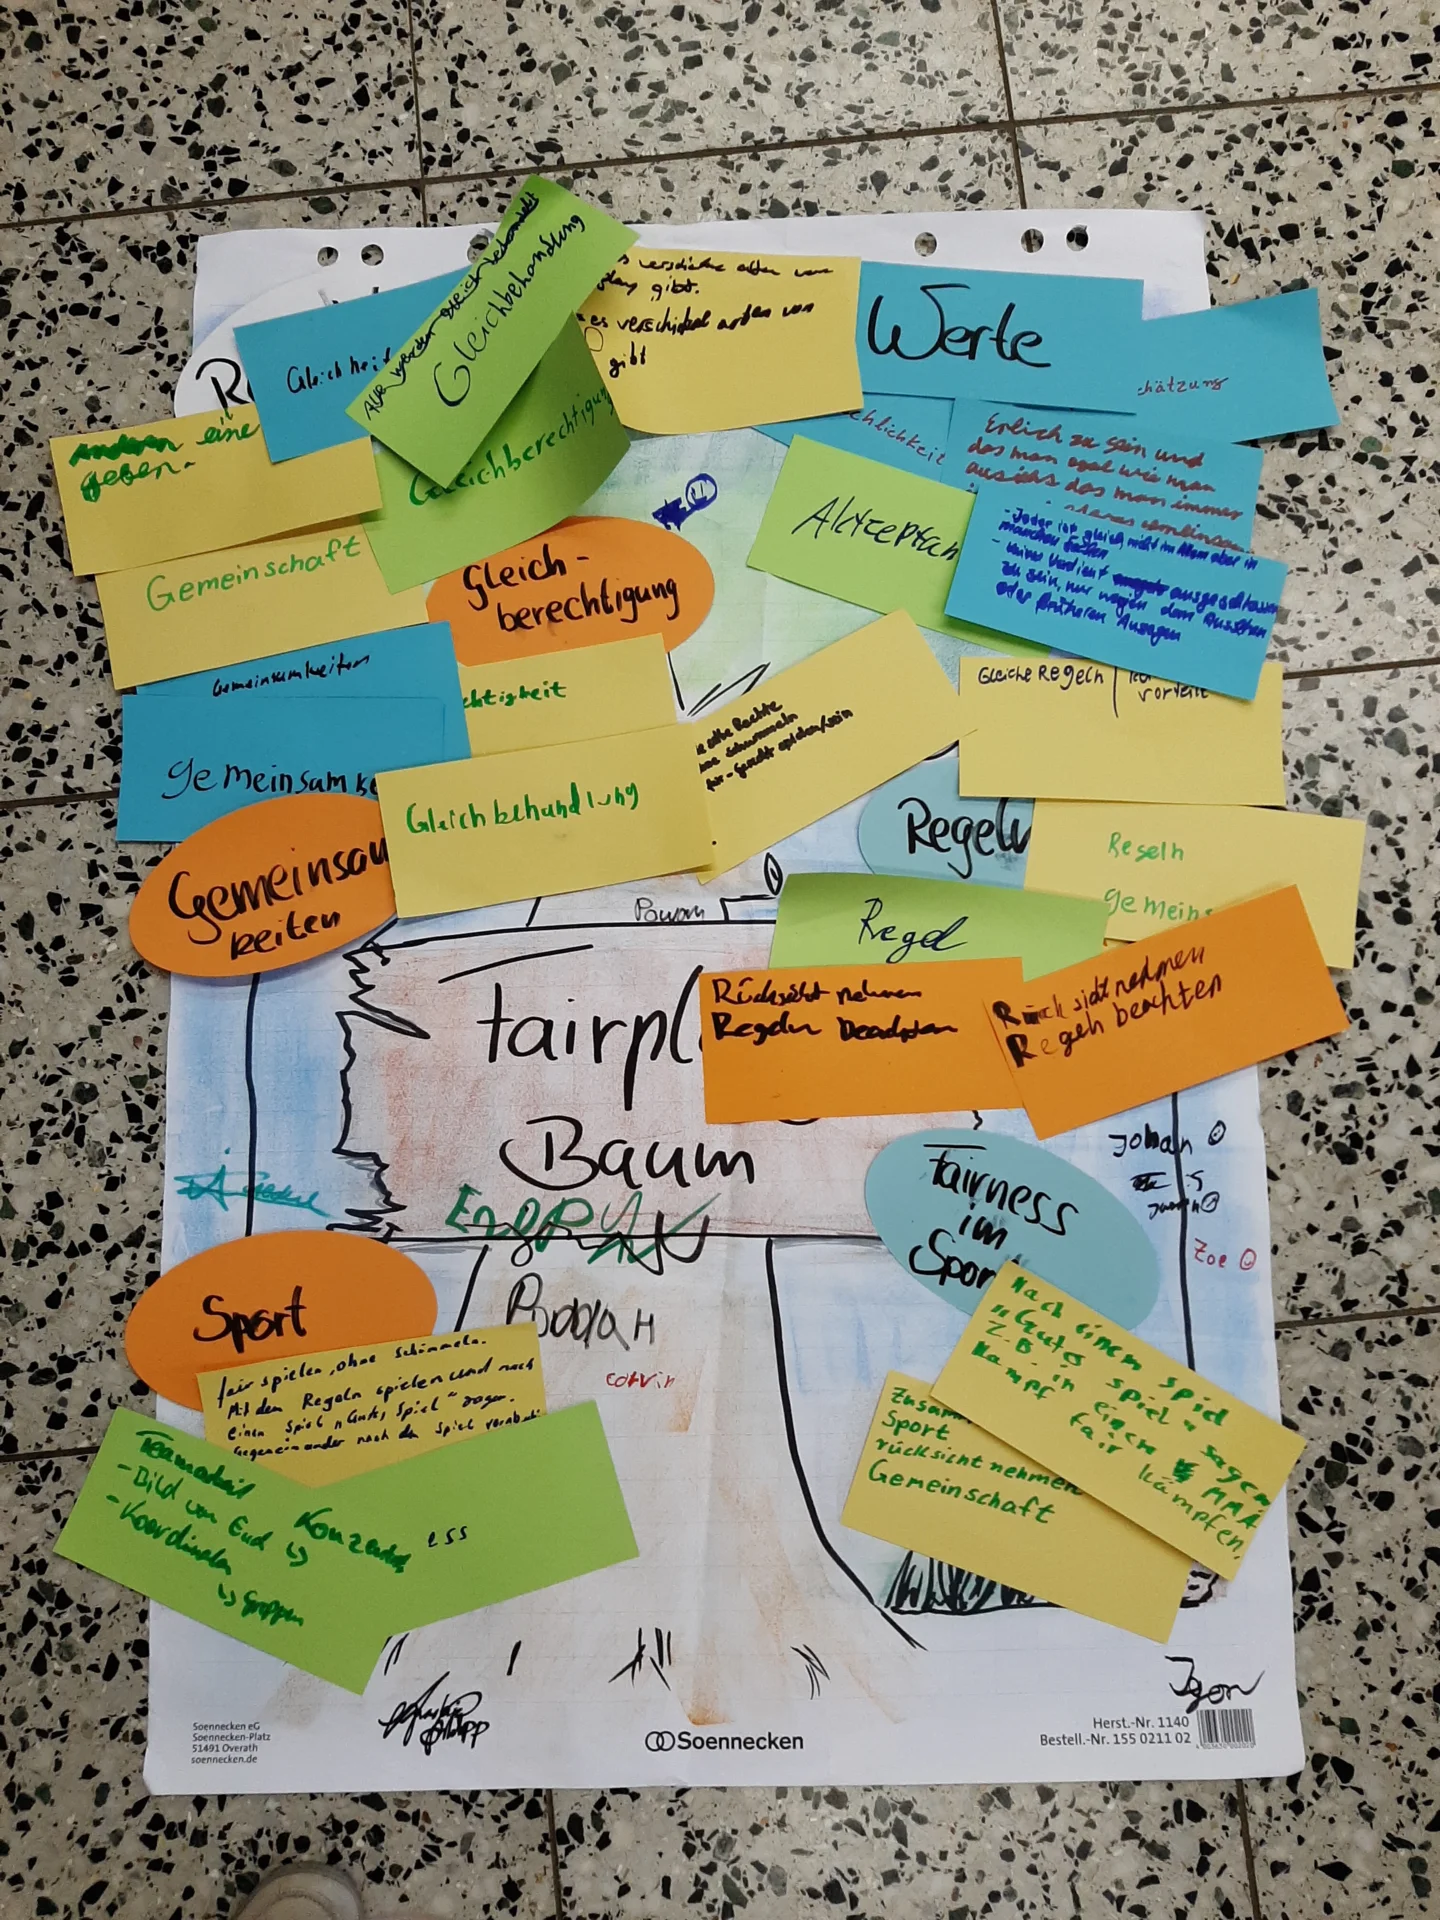 Gleichheit
Alle werden gleich behandelt
Gleichbehandlung
Gleichberechtigung
gibt.
es verschidene arten von
gibt
Werte
chätzung
chlichkeit
Erlich zu sein und
das man egal wie man
aussieht das man immer
- Jeder ist gleich nicht im Allem aber in
manchen Fällen
- keiner Verdient ausgeschlossen
zu sein, nur wegen dem Aussehen
oder früheren Aussagen
Akzeptan
eine
geben.
Gemeinschaft
Gleich-
berechtigung
Gemeinsamkeiten
gemeinsamke
chtigkeit
Gleichbehandlung
alle Rechte
ne schummeln
fair - gerecht spielen/sein
Gleiche Regeln
vorteile
Regeln
Regeln
gemeins
Gemeinsam
keiten
Regel
Rücksicht nehmen
Regeln beachten
Rücksicht nehmen
Regeln beachten
fairpl
Baum
Johan
Zoe
Fairness
im
Spor
Sport
corvin
fair spielen, ohne schummeln.
Mit den Regeln spielen und nach
einen Spiel "Gutes Spiel" sagen.
gegeneinander nach dem Spiel
Teamarbeit
- Bild von Eud
- Koordination
↳ Gruppen
ess
Nach einem spiel
"Gutes spiel" sagen
Z.B in einem MMA
Kampf fair kämpfen.
Zusam
Sport
rücksicht nehmen
Gemeinschaft
Soennecken eG
Soennecken-Platz
51491 Overath
soennecken.de
Soennecken
Herst.-Nr. 1140
Bestell.-Nr. 155 0211 02